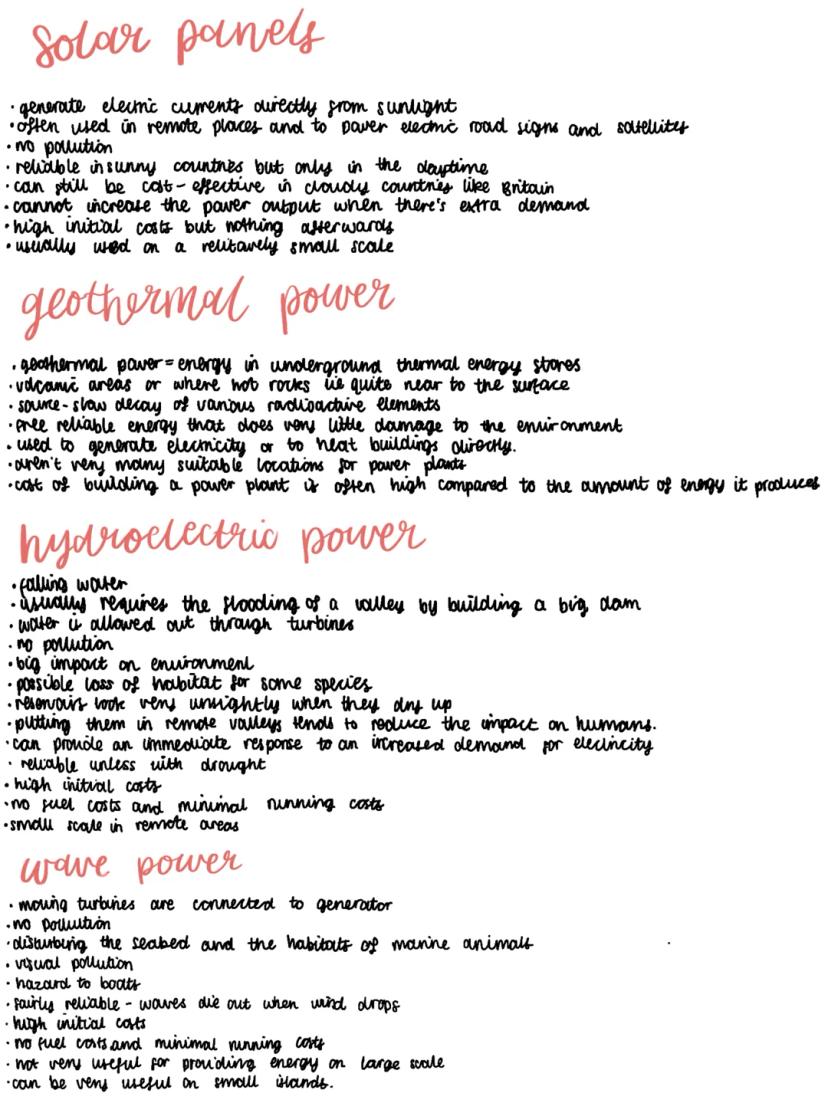 solar panels
• generate electric currents directly from sunlight
• often used in remote places and to power electric road signs and satellites
• no pollution
• reliable in sunny countries but only in the daytime
• can still be cost-effective in cloudy countries like Britain
• cannot increase the power output when there's extra demand
• high initial costs but nothing afterwards
• usually used on a relitavely small scale
geothermal power
• geothermal power = energy in underground thermal energy stores
• volcanic areas or where hot rocks lie quite near to the surface
• source - slow decay of various radioactive elements
• free reliable energy that does very little damage to the environment
• used to generate electricity or to heat buildings directly.
• aren't very many suitable locations for power plants
• cost of building a power plant is often high compared to the amount of energy it produces
hydroelectric power
• falling water
• usually requires the flooding of a valley by building a big dam
• water is allowed out through turbines
• no pollution
• big impact on environment
• possible loss of habitat for some species
• reservoirs look very unsightly when they dry up
• putting them in remote valleys tends to reduce the impact on humans.
• can provide an immediate response to an increased demand for electricity
• reliable unless with drought
• high initial costs
• no fuel costs and minimal running costs
• small scale in remote areas
wave power
• moving turbines are connected to generator
• no pollution
• disturbing the seabed and the habitats of marine animals
• visual pollution
• hazard to boats
• fairly reliable - waves die out when wind drops
• high initial costs
• no fuel costs and minimal running costs
• not very useful for providing energy on large scale
• can be very useful on small islands.